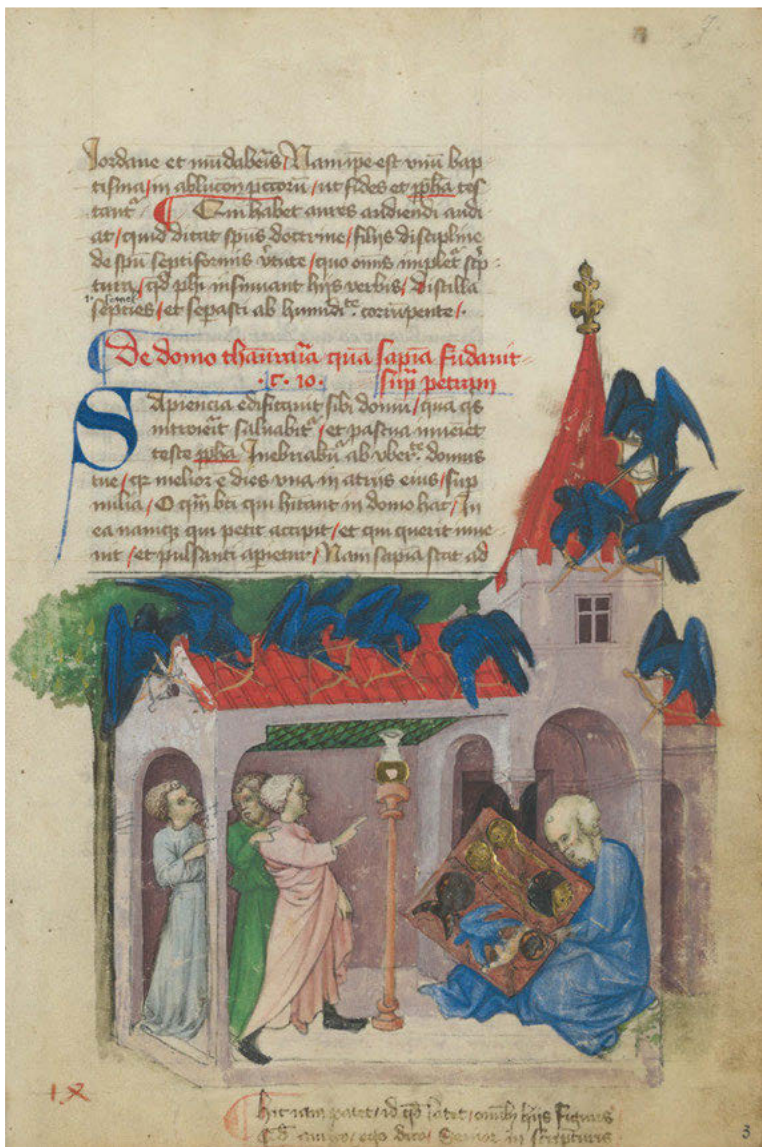 Iordane et mūdabeīs / Nam ip̄e est vnū bap
tisma / in ablucōn pccorū / ut fides et ꝓph̄a tes
tantᷣ ¶ Qui habet aures audiendi audi
at / quid dicat spūs doctrine / filijs discipline
de spū septiformis v̄tute / quo omīs implet᷑ sc̄p
tura / qd̄ ph̄i insinuant hijs verbis / Distilla
septies / et sepasti ab humidi.te corrūpente /.
¶ De domo thaurarīa qua sapīa fūdauit
.c. 10. sup̄ petram
Sapiencia edificauit sibi domū / qua qs
introierīt saluabit᷑ / et pascua inueiet
teste ꝓph̄a Inebriabūt᷑ ab vber.te domus
tue / qr melior ē dies vna in atrijs eius / sup
milia / O qm̄ bt̄i qui hītant in domo hac / In
ea namqꝫ qui petit accipit / et qui querit inue
nit / et pulsanti aperietur / Nam sapīa stat ad
IX
¶ hic iam patet / id qd̄ latet / hijs figuris
ego dico / in scripturis
3